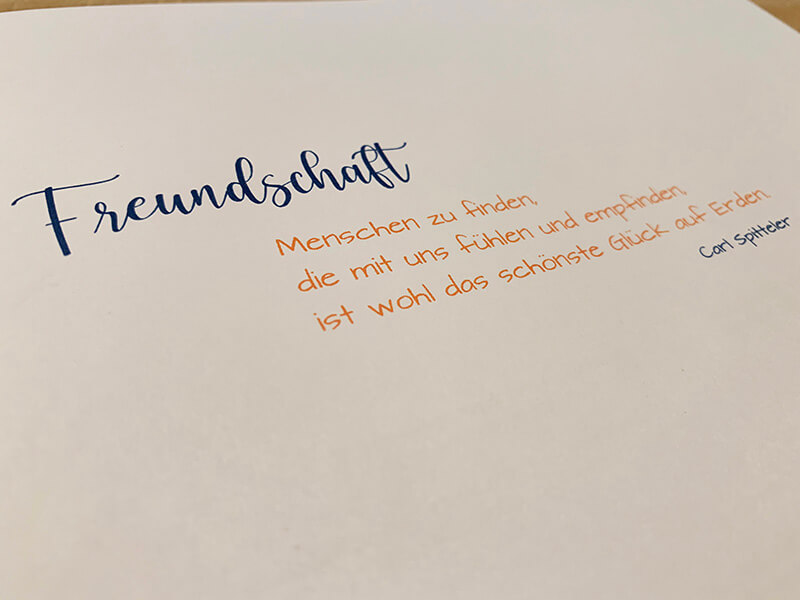 Freundschaft
Menschen zu finden,
die mit uns fühlen und empfinden,
ist wohl das schönste Glück auf Erden
Carl Spitteler